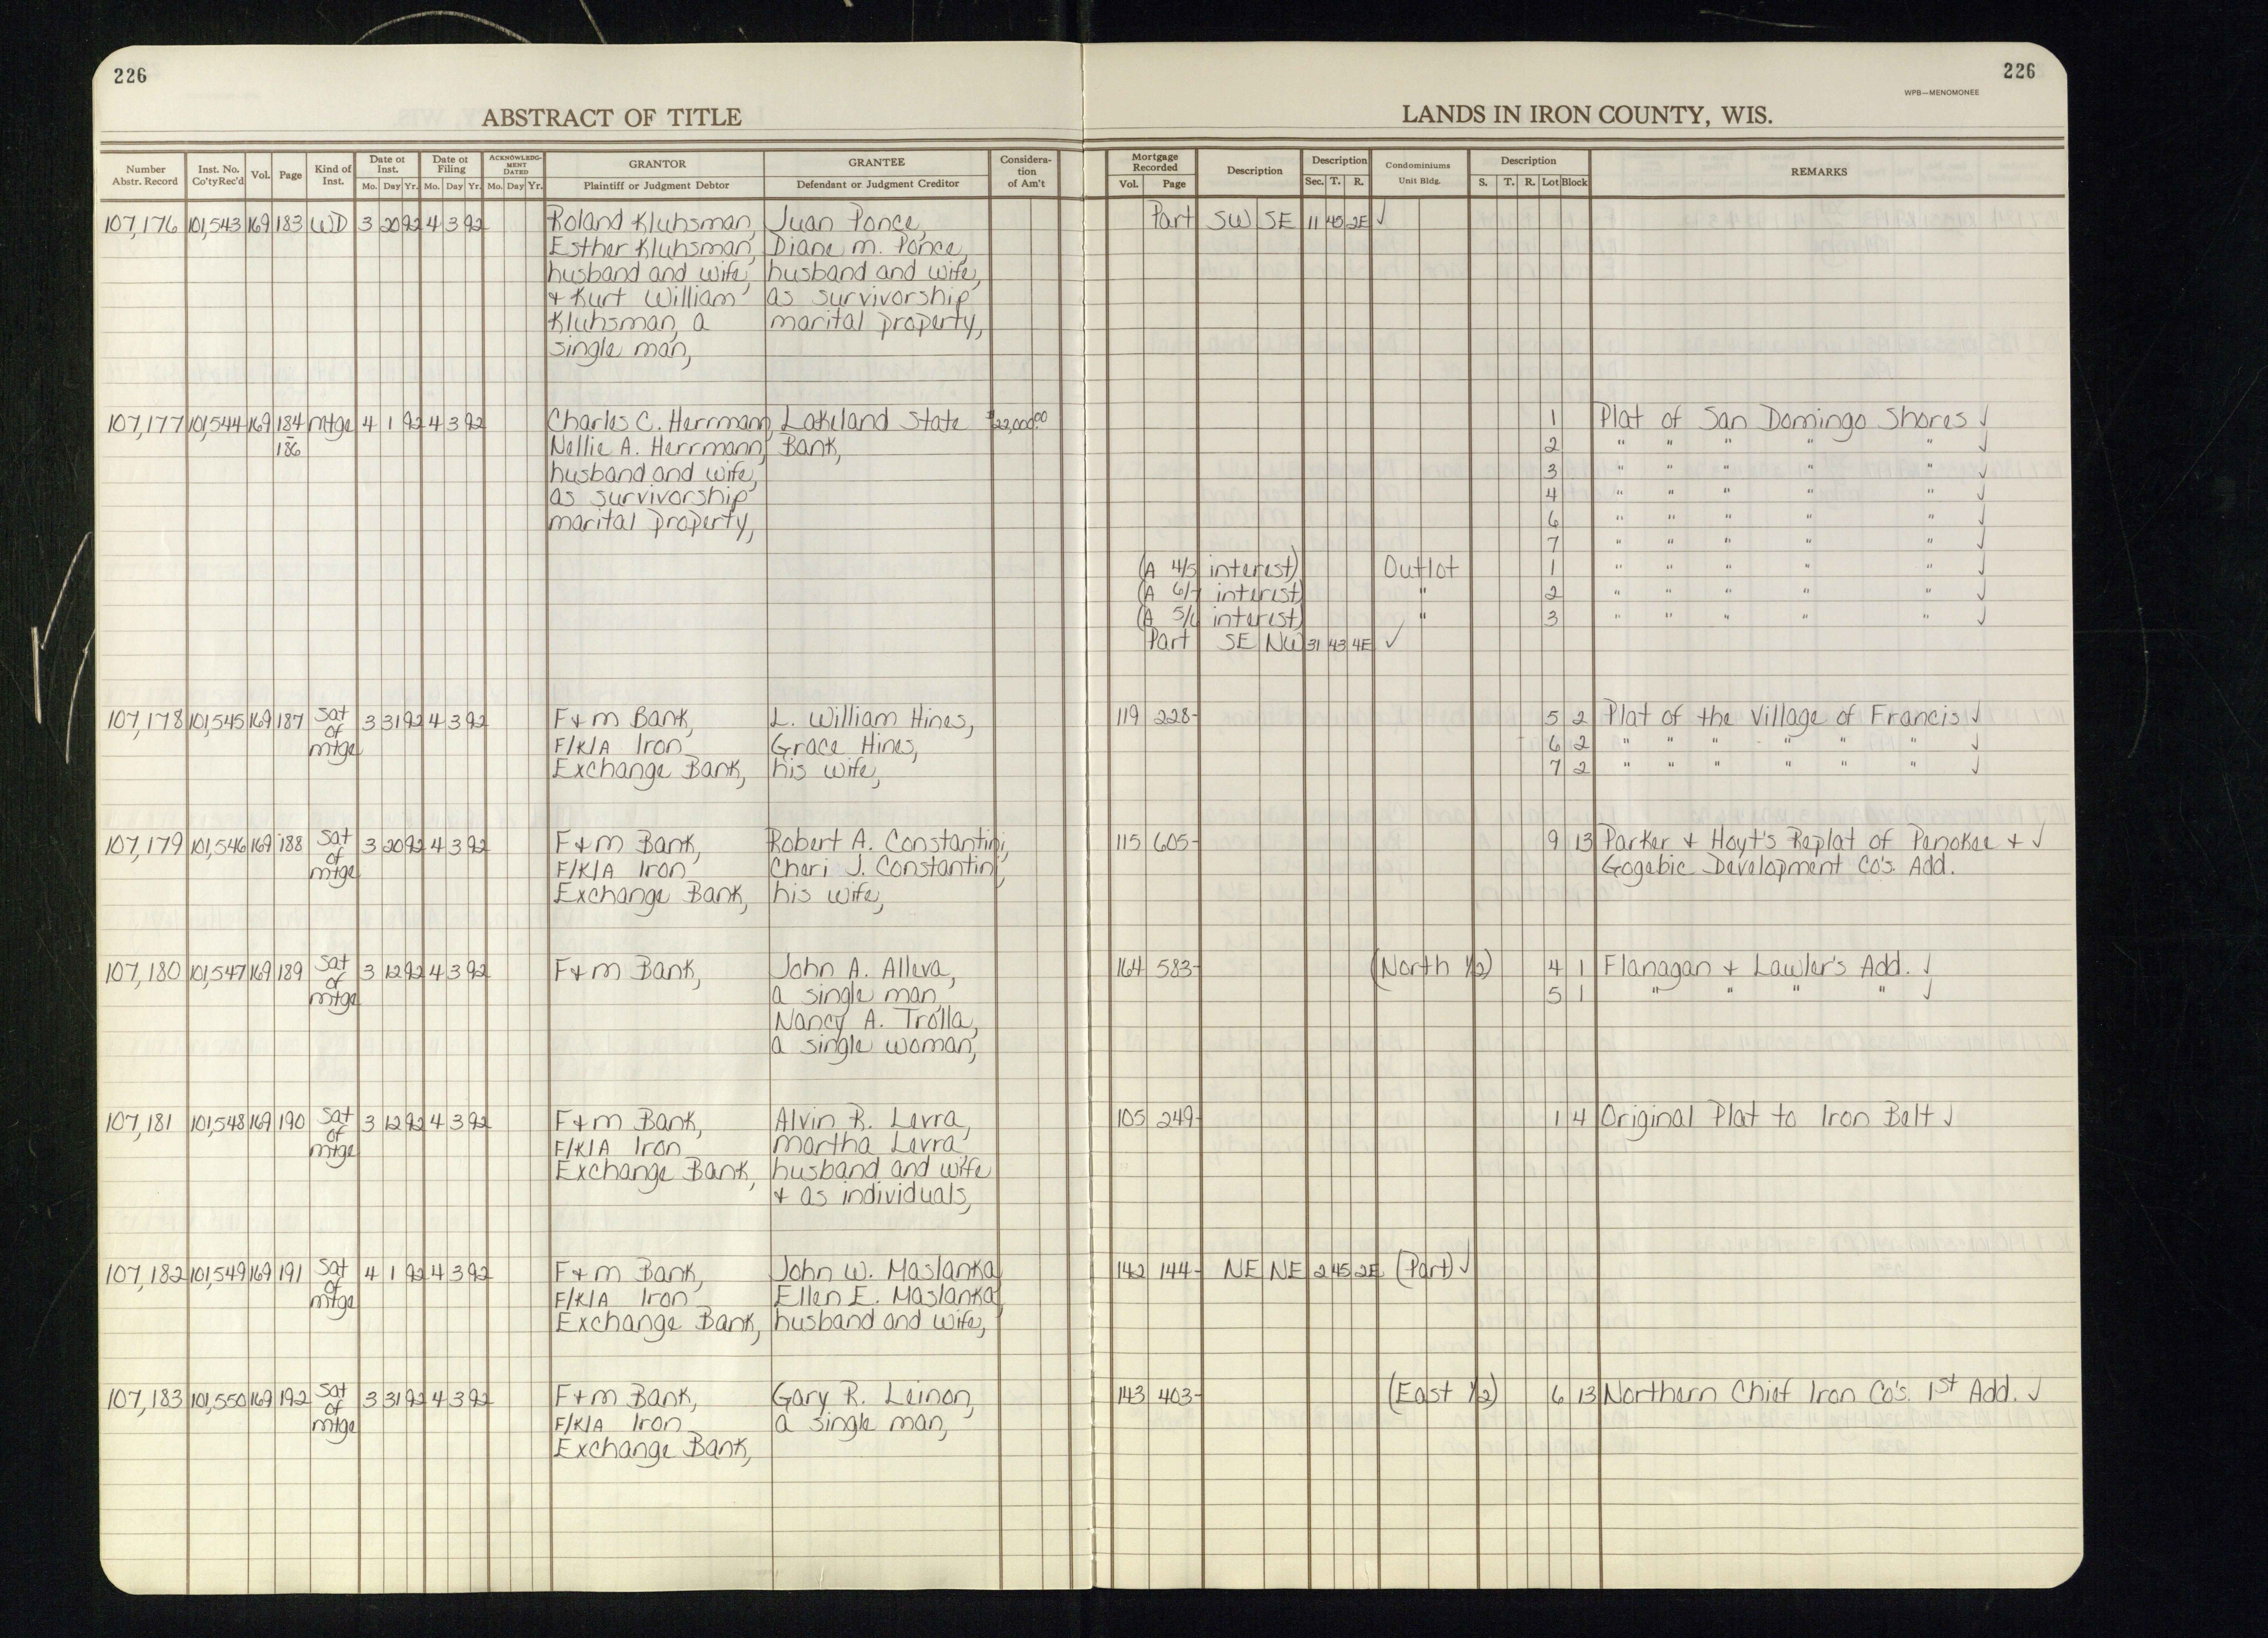 226
226
WPB—MENOMONEE
ABSTRACT OF TITLE
LANDS IN IRON COUNTY, WIS.
Number Abstr. Record | Inst. No. Co'ty Rec'd | Vol. | Page | Kind of Inst. | Date of Inst. Mo. Day Yr. | Date of Filing Mo. Day Yr. | ACKNOWLEDGMENT DATED Mo. Day Yr. | GRANTOR Plaintiff or Judgment Debtor | GRANTEE Defendant or Judgment Creditor | Consideration of Am't | Mortgage Recorded Vol. Page | Description | Description Sec. T. R. | Condominiums Unit Bldg. | Description S. T. R. Lot Block | REMARKS
107,176 101,543 169 183 WD 3 20 92 4 3 92 Roland Kluhsman, Juan Ponce, Part SW SE 11 45 2E ✓
Esther Kluhsman, Diane M. Ponce,
husband and wife, husband and wife,
+ Kurt William as survivorship
Kluhsman, a marital property,
single man,
107,177 101,544 169 184 mtge 4 1 92 4 3 92 Charles C. Herrmann, Lakeland State $22,000.00 1 Plat of San Domingo Shores ✓
- 186 Nellie A. Herrmann, Bank, 2 " " " " " ✓
husband and wife, 3 " " " " " ✓
as survivorship 4 " " " " " ✓
marital property, 6 " " " " " ✓
7 " " " " " ✓
(A 4/5 interest) Outlot 1 " " " " " ✓
(A 6/7 interest) " 2 " " " " " ✓
(A 5/6 interest) " 3 " " " " " ✓
Part SE NW 31 43 4E ✓
107,178 101,545 169 187 Sat of mtge 3 31 92 4 3 92 F+M Bank, L. William Hines, 119 228- 5 2 Plat of the Village of Francis ✓
F/K/A Iron Grace Hines, 6 2 " " " " " " ✓
Exchange Bank, his wife, 7 2 " " " " " " ✓
107,179 101,546 169 188 Sat of mtge 3 20 92 4 3 92 F+M Bank, Robert A. Constantini, 115 605- 9 13 Parker + Hoyt's Replat of Penokee + ✓
F/K/A Iron Cheri J. Constantini, Gogebic Development Co's. Add.
Exchange Bank, his wife,
107,180 101,547 169 189 Sat of mtge 3 12 92 4 3 92 F+M Bank, John A. Alleva, 164 583- (North 1/2) 4 1 Flanagan + Lawler's Add. ✓
a single man, 5 1 " " " " ✓
Nancy A. Trolla,
a single woman,
107,181 101,548 169 190 Sat of mtge 3 12 92 4 3 92 F+M Bank, Alvin R. Levra, 105 249- 1 4 Original Plat to Iron Belt ✓
F/K/A Iron Martha Levra
Exchange Bank, husband and wife
+ as individuals,
107,182 101,549 169 191 Sat of mtge 4 1 92 4 3 92 F+M Bank, John W. Maslanka, 142 144- NE NE 2 45 2E (Part) ✓
F/K/A Iron Ellen E. Maslanka,
Exchange Bank, husband and wife,
107,183 101,550 169 192 Sat of mtge 3 31 92 4 3 92 F+M Bank, Gary R. Leinon, 143 403- (East 1/2) 6 13 Northern Chief Iron Co's. 1st Add. ✓
F/K/A Iron a single man,
Exchange Bank,